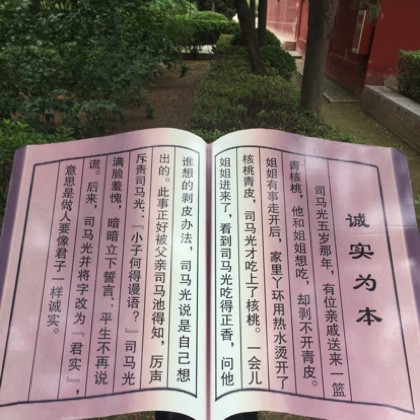 诚实为本
司马光五岁那年，有位亲戚送来一篮
青核桃，他和姐姐想吃，却剥不开青皮。
姐姐有事走开后，家里丫环用热水烫开了
核桃青皮，司马光才吃上了核桃。一会儿
姐姐进来了，看到司马光吃得正香，问他
谁想的剥皮办法，司马光说是自己想
出的。此事正好被父亲司马池得知，厉声
斥责司马光：“小子何得谩语？”司马光
满脸羞愧，暗暗立下誓言：平生不再说
谎。后来，司马光并将字改为“君实”，
意思是做人要像君子一样诚实。